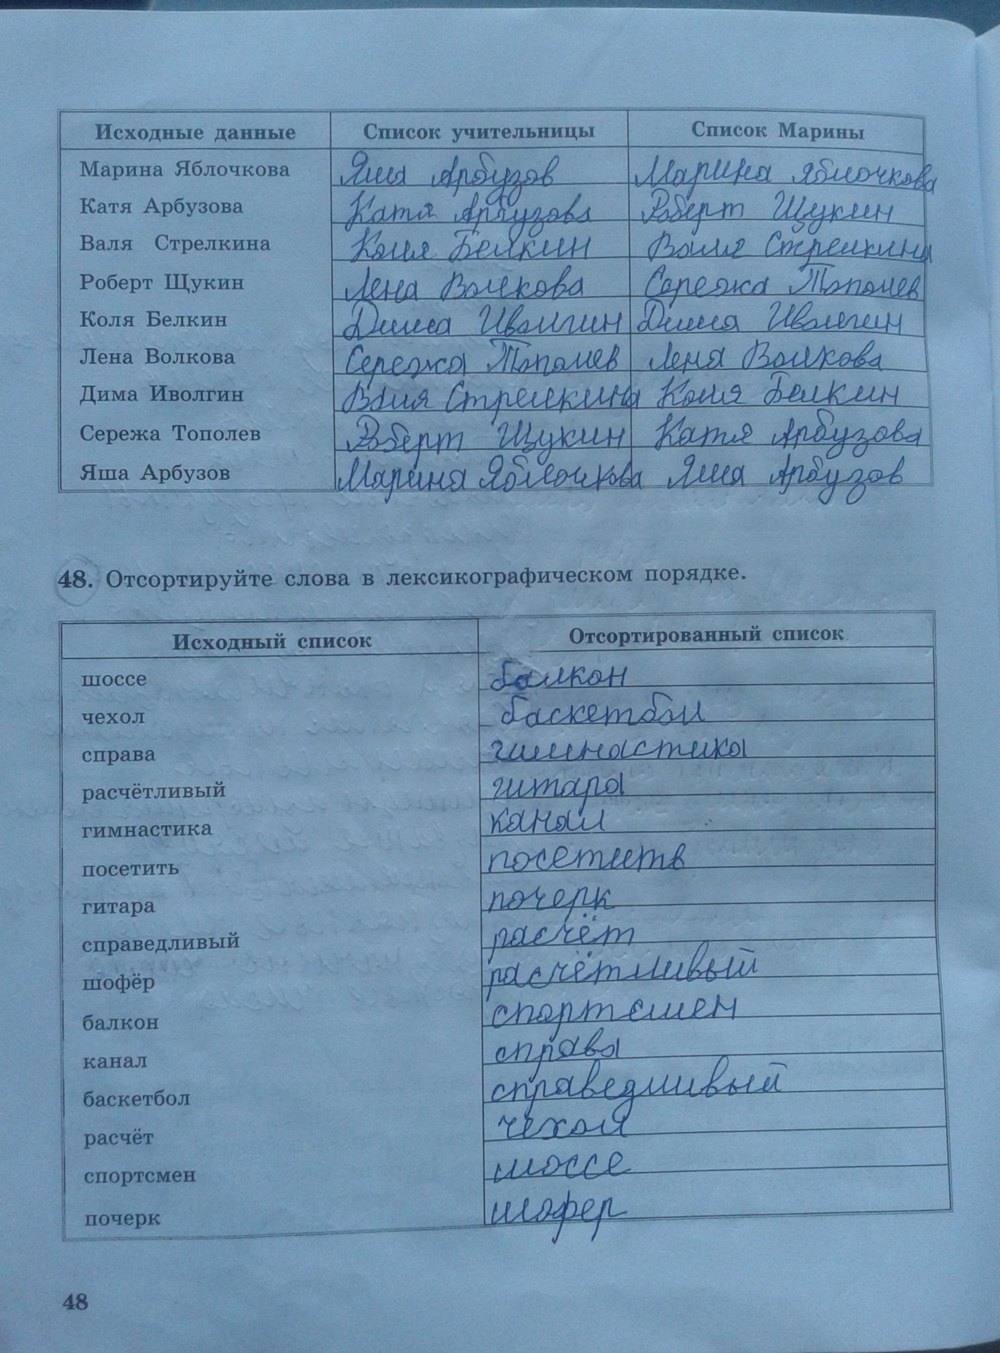 Исходные данные Список учительницы Список Марины
Марина Яблочкова Яша Арбузов Марина Яблочкова
Катя Арбузова Катя Арбузова Роберт Щукин
Валя Стрелкина Коля Белкин Валя Стрелкина
Роберт Щукин Лена Волкова Сережа Тополев
Коля Белкин Дима Иволгин Дима Иволгин
Лена Волкова Сережа Тополев Лена Волкова
Дима Иволгин Валя Стрелкина Коля Белкин
Сережа Тополев Роберт Щукин Катя Арбузова
Яша Арбузов Марина Яблочкова Яша Арбузов
48. Отсортируйте слова в лексикографическом порядке.
Исходный список Отсортированный список
шоссе балкон
чехол баскетбол
справа гимнастика
расчётливый гитара
гимнастика канал
посетить посетить
гитара почерк
справедливый расчёт
шофёр расчётливый
балкон спортсмен
канал справа
баскетбол справедливый
расчёт чехол
спортсмен шоссе
почерк шофер
48